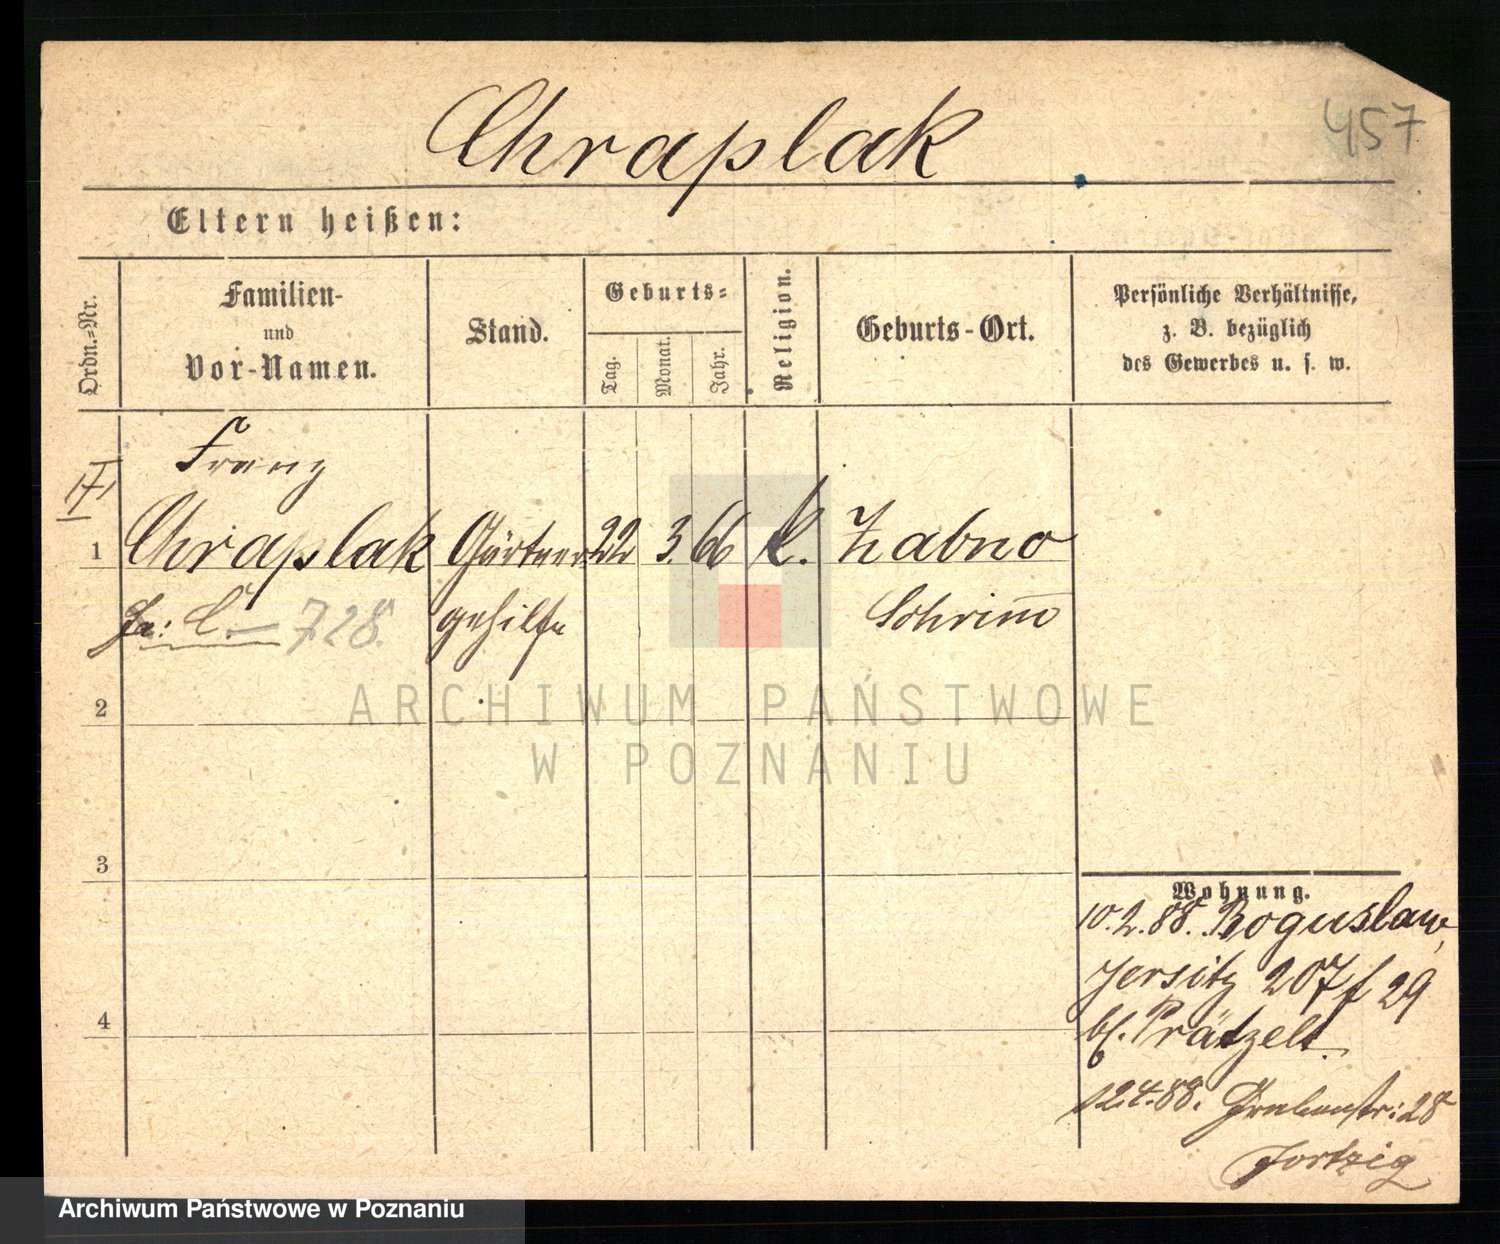 Chraplak
457
Eltern heißen:
Ordn.-Nr.
Familien-
und
Vor-Namen.
Stand.
Geburts-
Tag.
Monat.
Jahr.
Religion.
Geburts-Ort.
Persönliche Verhältnisse,
z. B. bezüglich
des Gewerbes u. s. w.
Franz
1 Chraplak Gärtner 22 3. 66 k. Zabno
C. 728. gehilfe Schrim̄
2
3
4
Wohnung.
10.2.88. Boguslaw,
Jersitz 207 f 29
bf. Prätzelt.
12.4.88. Grabenstr: 28
Jortzig
ARCHIWUM PAŃSTWOWE
W POZNANIU
Archiwum Państwowe w Poznaniu